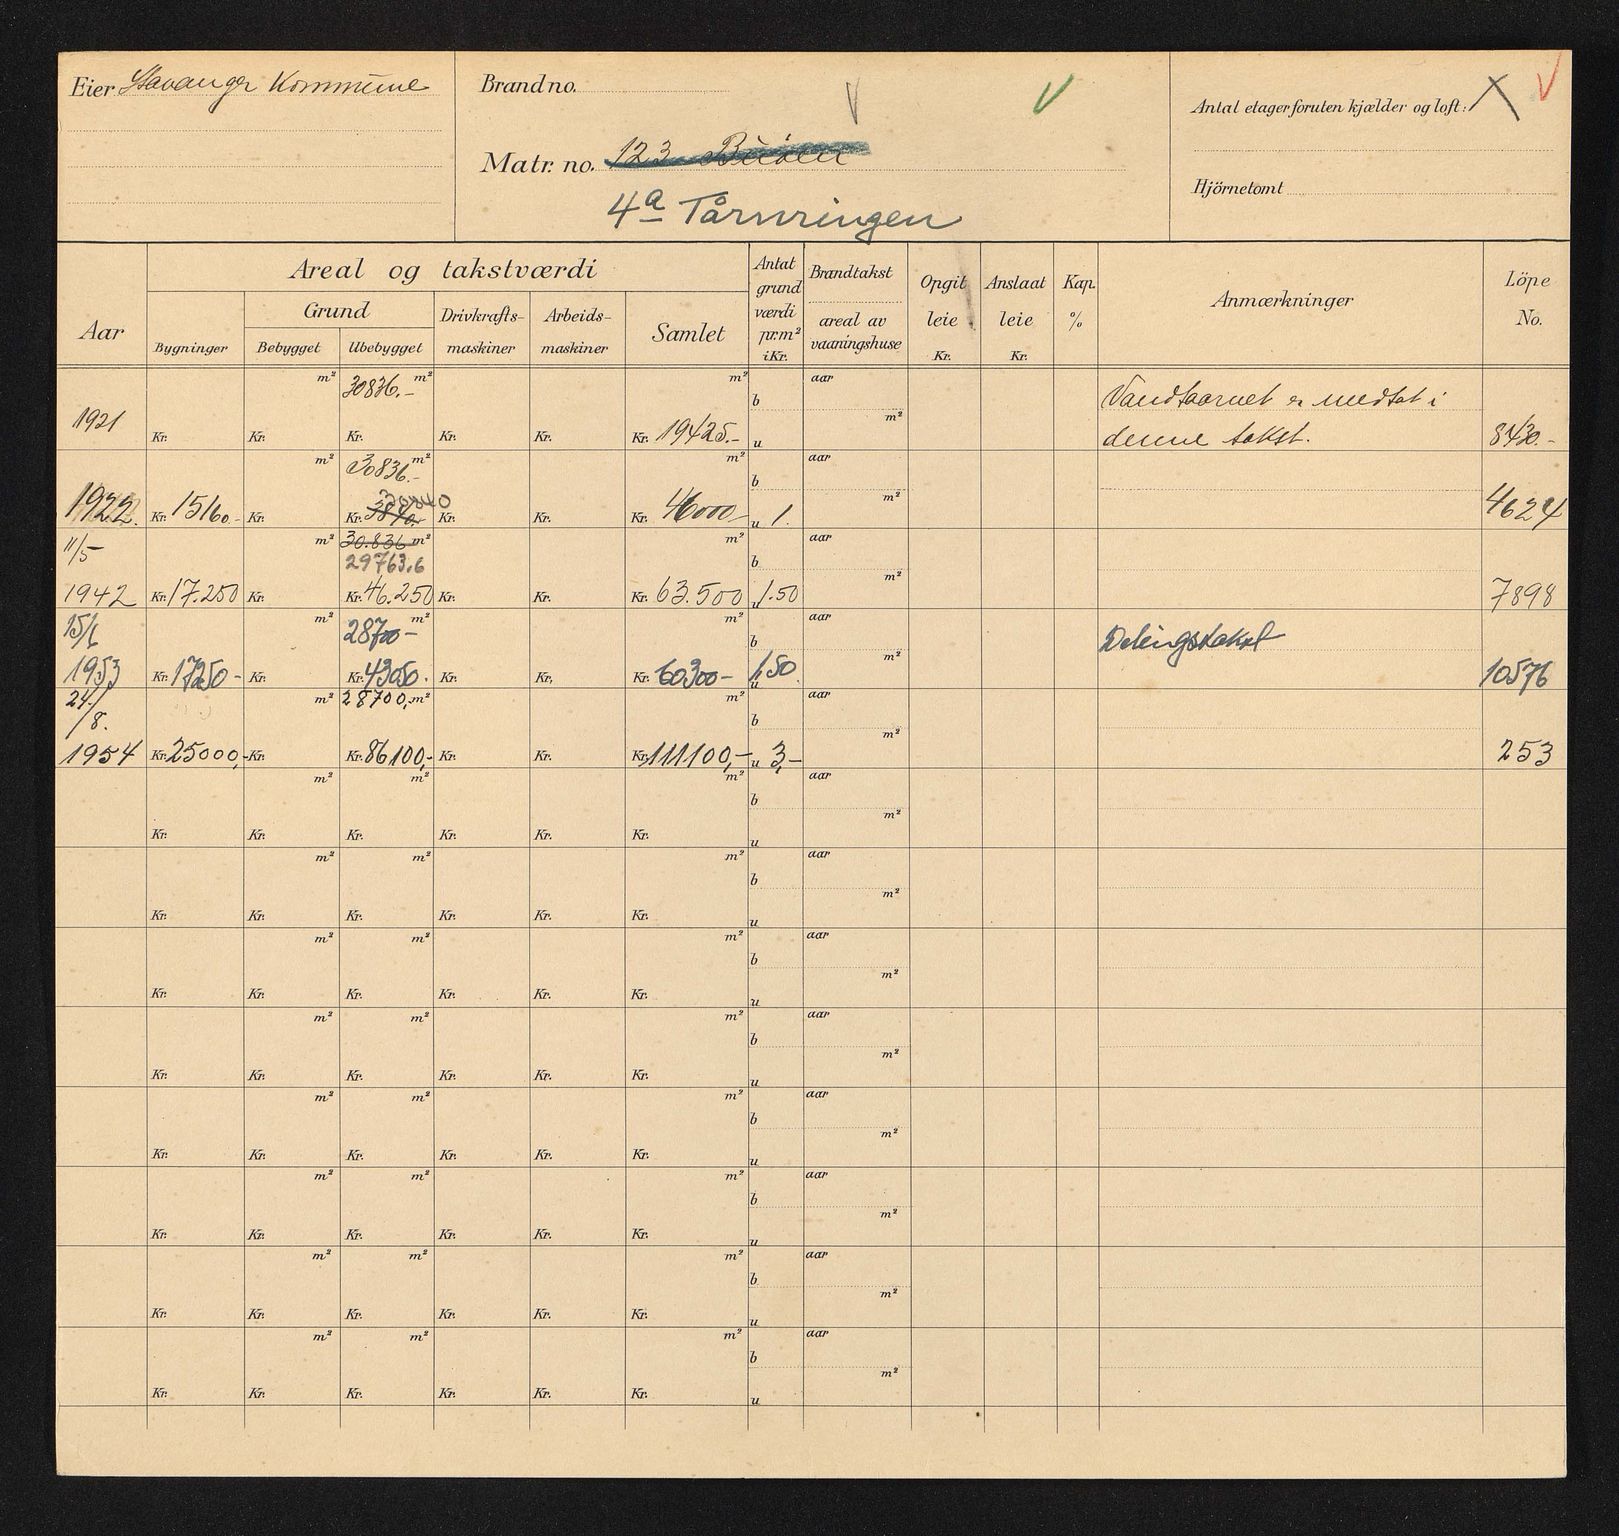 Eier Stavanger Kommune
Brandno.
Matr. no. 123
4a Tårnringen
Antal etager foruten kjælder og loft:
Hjörnetomt
Aar
Areal og takstværdi
Grund
Bygninger Bebygget Ubebygget Drivkrafts-maskiner Arbeids-maskiner Samlet
Antat grund værdi pr.m² i Kr.
Brandtakst
areal av vaaningshuse
Opgit leie Kr.
Anslaat leie Kr.
Kap. %
Anmærkninger
Löpe No.
m² 30836.- m² m² aar Vandtaarnet er medtat i
b
m²
1921 Kr. Kr. Kr. Kr. Kr. Kr. 19425.- u denne takst. 8430.-
m² 30836.- m² m² aar
b
30840 m²
1922. Kr. 15160.- Kr. Kr. Kr. Kr. Kr. 46000- u 1. 4624
11/5 m² 30.836 m² m² aar
29763.6 b
m²
1942 Kr. 17.250 Kr. Kr. 46.250 Kr. Kr. Kr. 63.500 u 1.50 7898
15/6 m² 28700- m² m² aar
b Delingstakst
m²
1953 Kr. 17250- Kr. Kr. 43050. Kr. Kr. Kr. 60300- u 1,50 10576
24/8. m² 28700,- m² m² aar
b
m²
1954 Kr. 25000,- Kr. Kr. 86100,- Kr. Kr. Kr. 111100,- u 3,- 253
m² m² m² aar
b
m²
Kr. Kr. Kr. Kr. Kr. Kr. u
m² m² m² aar
b
m²
Kr. Kr. Kr. Kr. Kr. Kr. u
m² m² m² aar
b
m²
Kr. Kr. Kr. Kr. Kr. Kr. u
m² m² m² aar
b
m²
Kr. Kr. Kr. Kr. Kr. Kr. u
m² m² m² aar
b
m²
Kr. Kr. Kr. Kr. Kr. Kr. u
m² m² m² aar
b
m²
Kr. Kr. Kr. Kr. Kr. Kr. u
m² m² m² aar
b
m²
Kr. Kr. Kr. Kr. Kr. Kr. u
m² m² m² aar
b
m²
Kr. Kr. Kr. Kr. Kr. Kr. u